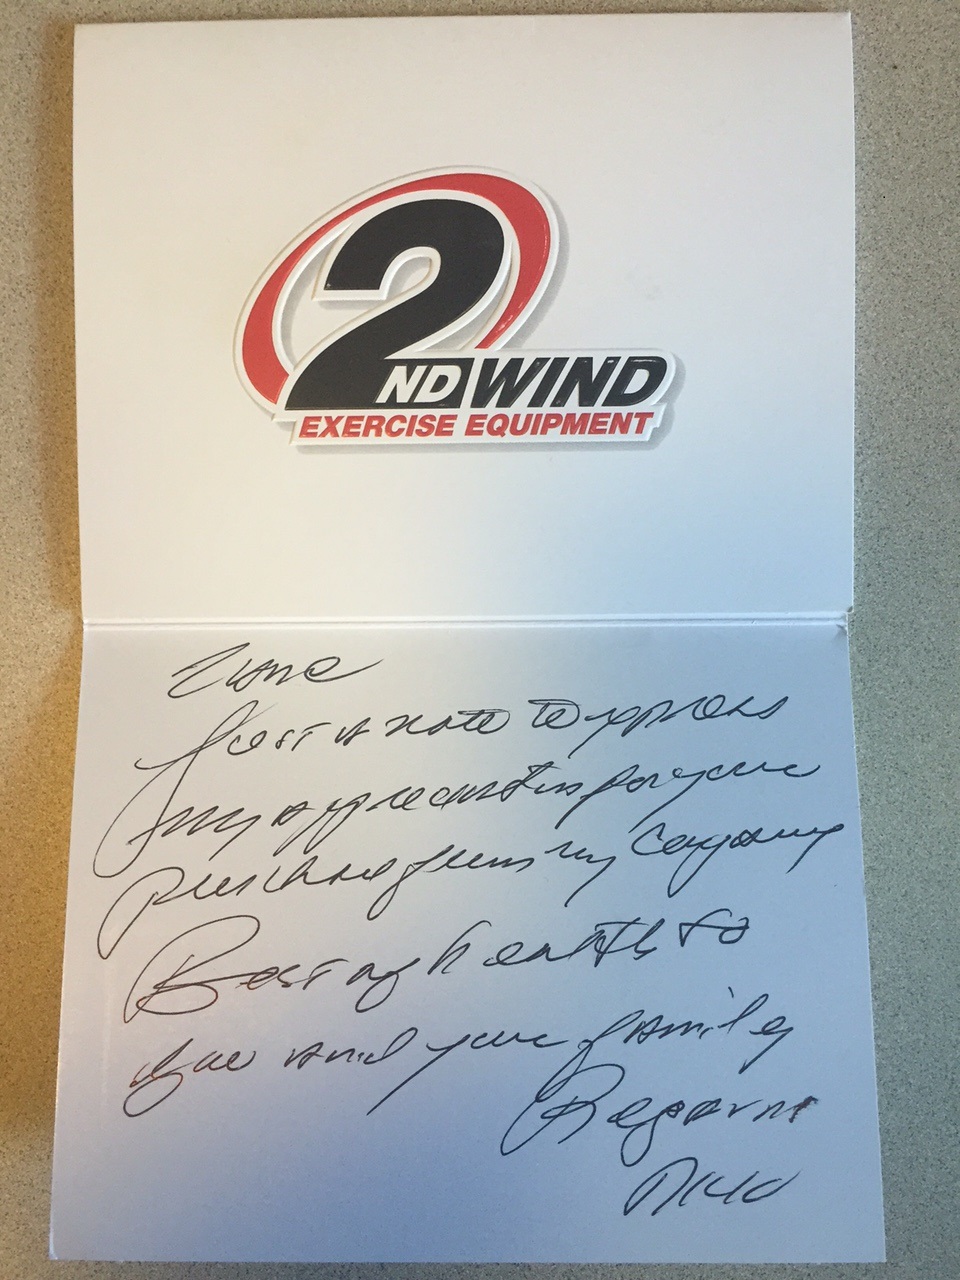 2
ND WIND
EXERCISE EQUIPMENT
Just a note to express
my appreciation for your
purchase from my company
Best of health to
you and your family
Regards